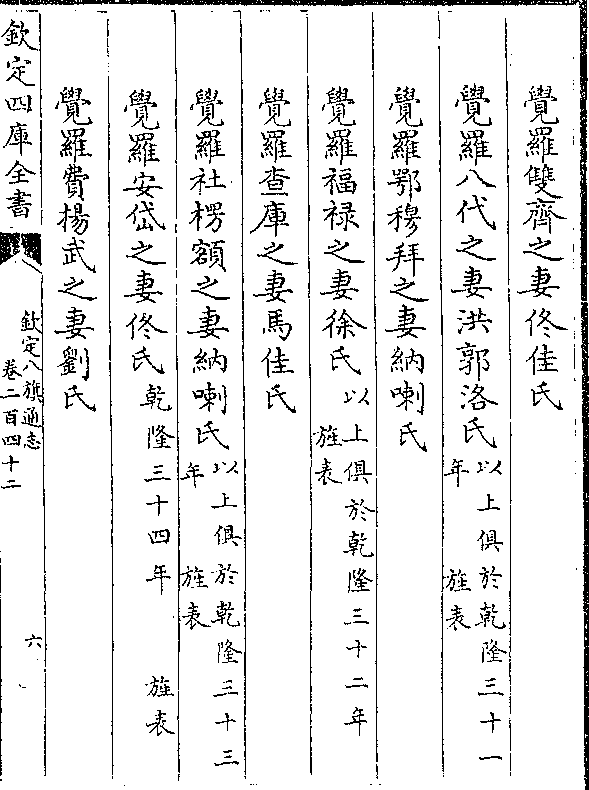 覺羅雙齊之妻佟佳氏
覺羅八代之妻洪郭洛氏以上俱於乾隆三十一
年旌表
覺羅鄂穆拜之妻納喇氏
覺羅福禄之妻徐氏以上俱於乾隆三十二年
旌表
覺羅查庫之妻馬佳氏
覺羅社楞額之妻納喇氏以上俱於乾隆三十三
年旌表
覺羅安岱之妻佟氏乾隆三十四年旌表
覺羅費揚武之妻劉氏
欽定四庫全書
欽定八旗通志
卷二百四十二
六